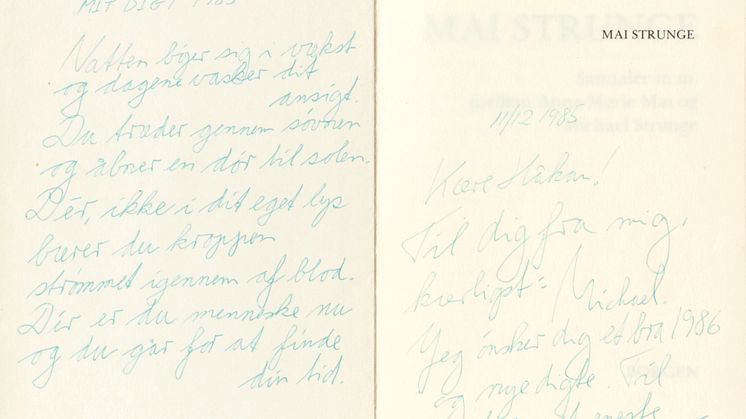 MIT DIGT 1985
Natten bøjer sig i vækst
og dagene vasker dit
ansigt.
Du træder gennem søvnen
og åbner en dør til solen.
Dér, ikke i dit eget lys
bærer du kroppen
strømmet igennem af blod.
Dér er du menneske nu
og du går for at finde
din tid.
MAI STRUNGE
11/12 1985
Kære Håkan!
Til dig fra mig,
kærligst: Michael.
Jeg ønsker dig et bra 1986
og nye digte. Til